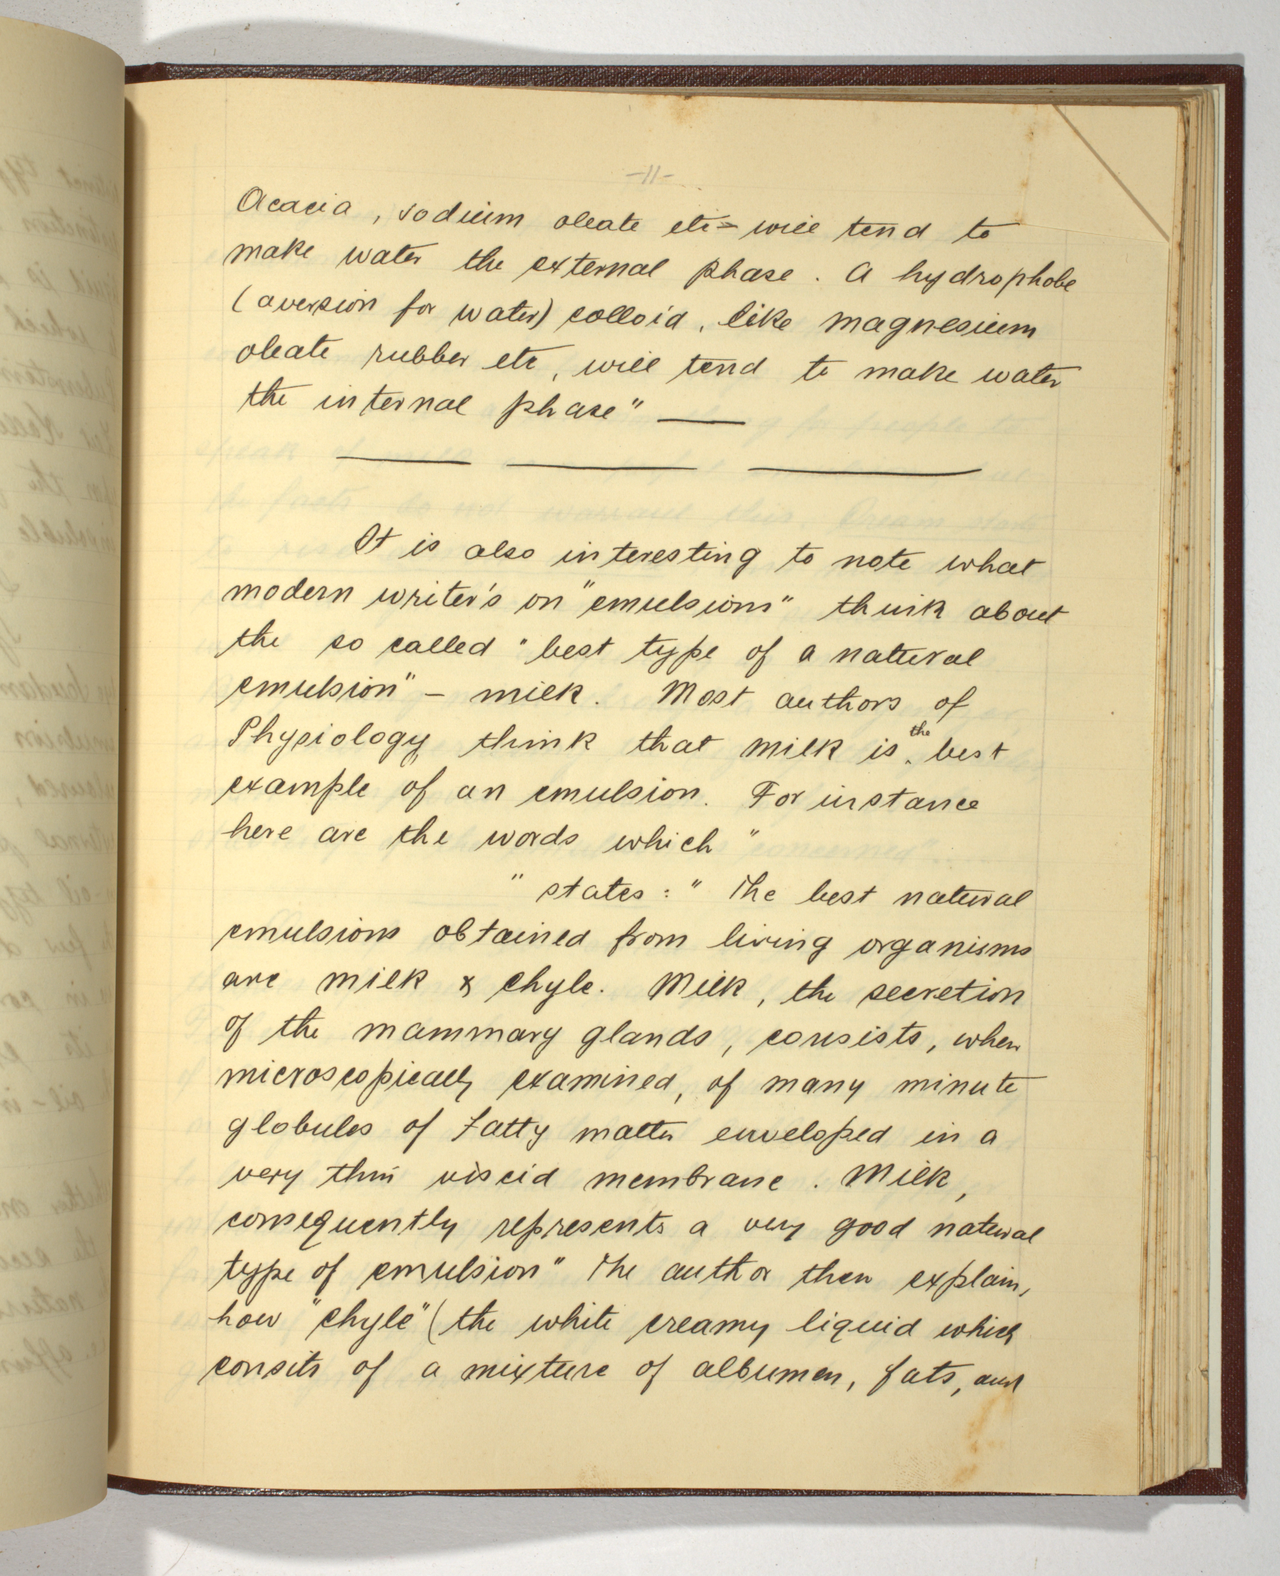 -11-
Acacia, sodium oleate etc= will tend to
make water the external phase. A hydrophobe
(aversion for water) colloid, like magnesium
oleate rubber etc, will tend to make water
the internal phase" ——
It is also interesting to note what
modern writer's on "emulsions" think about
the so called "best type of a natural
emulsion" – milk. Most authors of
Physiology think that milk is the best
example of an emulsion. For instance
here are the words which "
" states: " The best natural
emulsions obtained from living organisms
are milk & chyle. Milk, the secretion
of the mammary glands, consists, when
microscopically examined, of many minute
globules of fatty matter enveloped in a
very thin viscid membrane. Milk,
consequently represents a very good natural
type of emulsion" The author then explain,
how "chyle" (the white creamy liquid which
consits of a mixture of albumen, fats, and